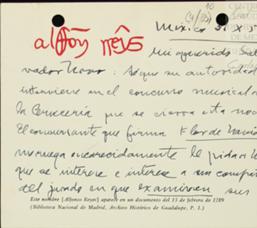 10
(4/03)
alfoñ rreyes
México 31 X 51
Mi querido Sal
vador Novo: Sé que su autoridad
interviene en el concurso musical de
la Cervecería que se cierra esta noche
El concursante que firma Flor de
me ruega encarecidamente le pida
que se interese e interese a sus compañ
del jurado en que examinen sus
Este nombre [Alfonso Reyes] aparece en un documento del 15 de febrero de 1289
(Biblioteca Nacional de Madrid, Archivo Histórico de Guadalupe, P. 1.)